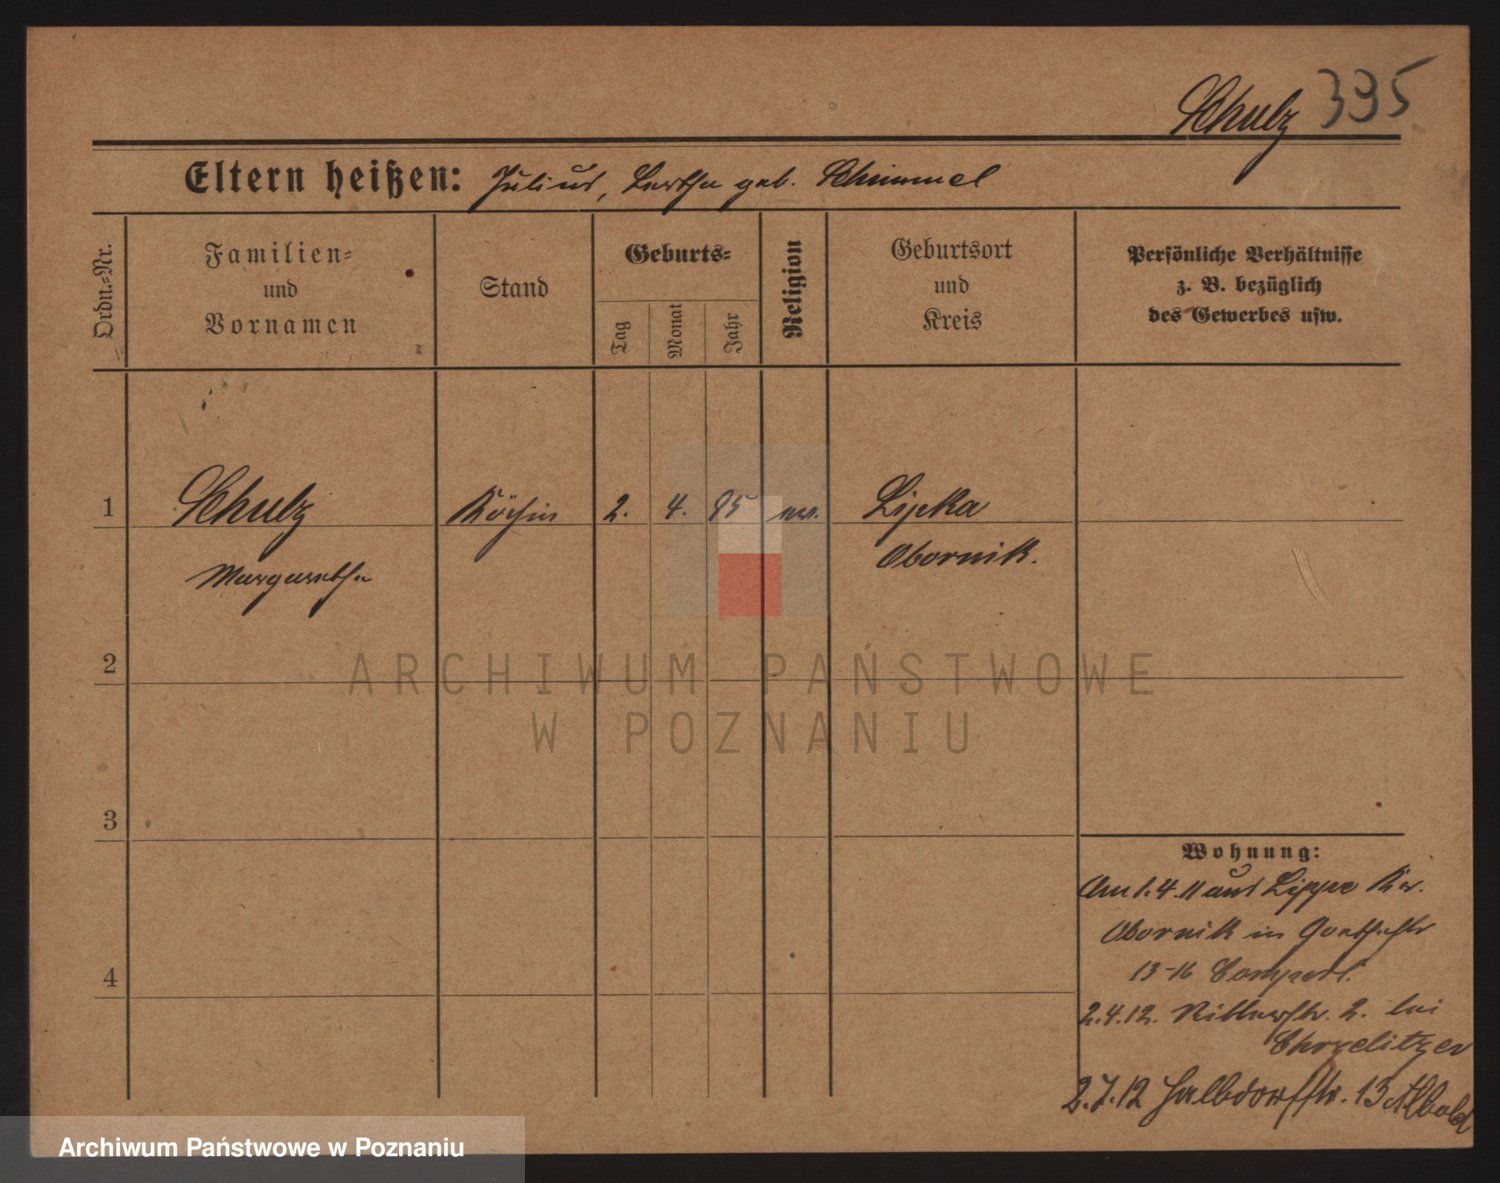 Schulz 335
Eltern heißen: Julius, Bertha geb. Schimmel
Ordn.=Nr.
Familien=
und
Vornamen
Stand
Geburts=
Tag
Monat
Jahr
Religion
Geburtsort
und
Kreis
Persönliche Verhältnisse
z. B. bezüglich
des Gewerbes usw.
1 Schulz Köchin 2. 4. 95 ev. Lipka
Margarethe Obornik.
2
ARCHIWUM PAŃSTWOWE
W POZNANIU
3
4
Wohnung:
Am 1.4.11 aus Lippe Kr.
Obornik in Goethestr
13-16
2.4.12. Ritterstr. 2. bei
Chrzelitzer
2.7.12 Halbdorfstr. 13
Archiwum Państwowe w Poznaniu